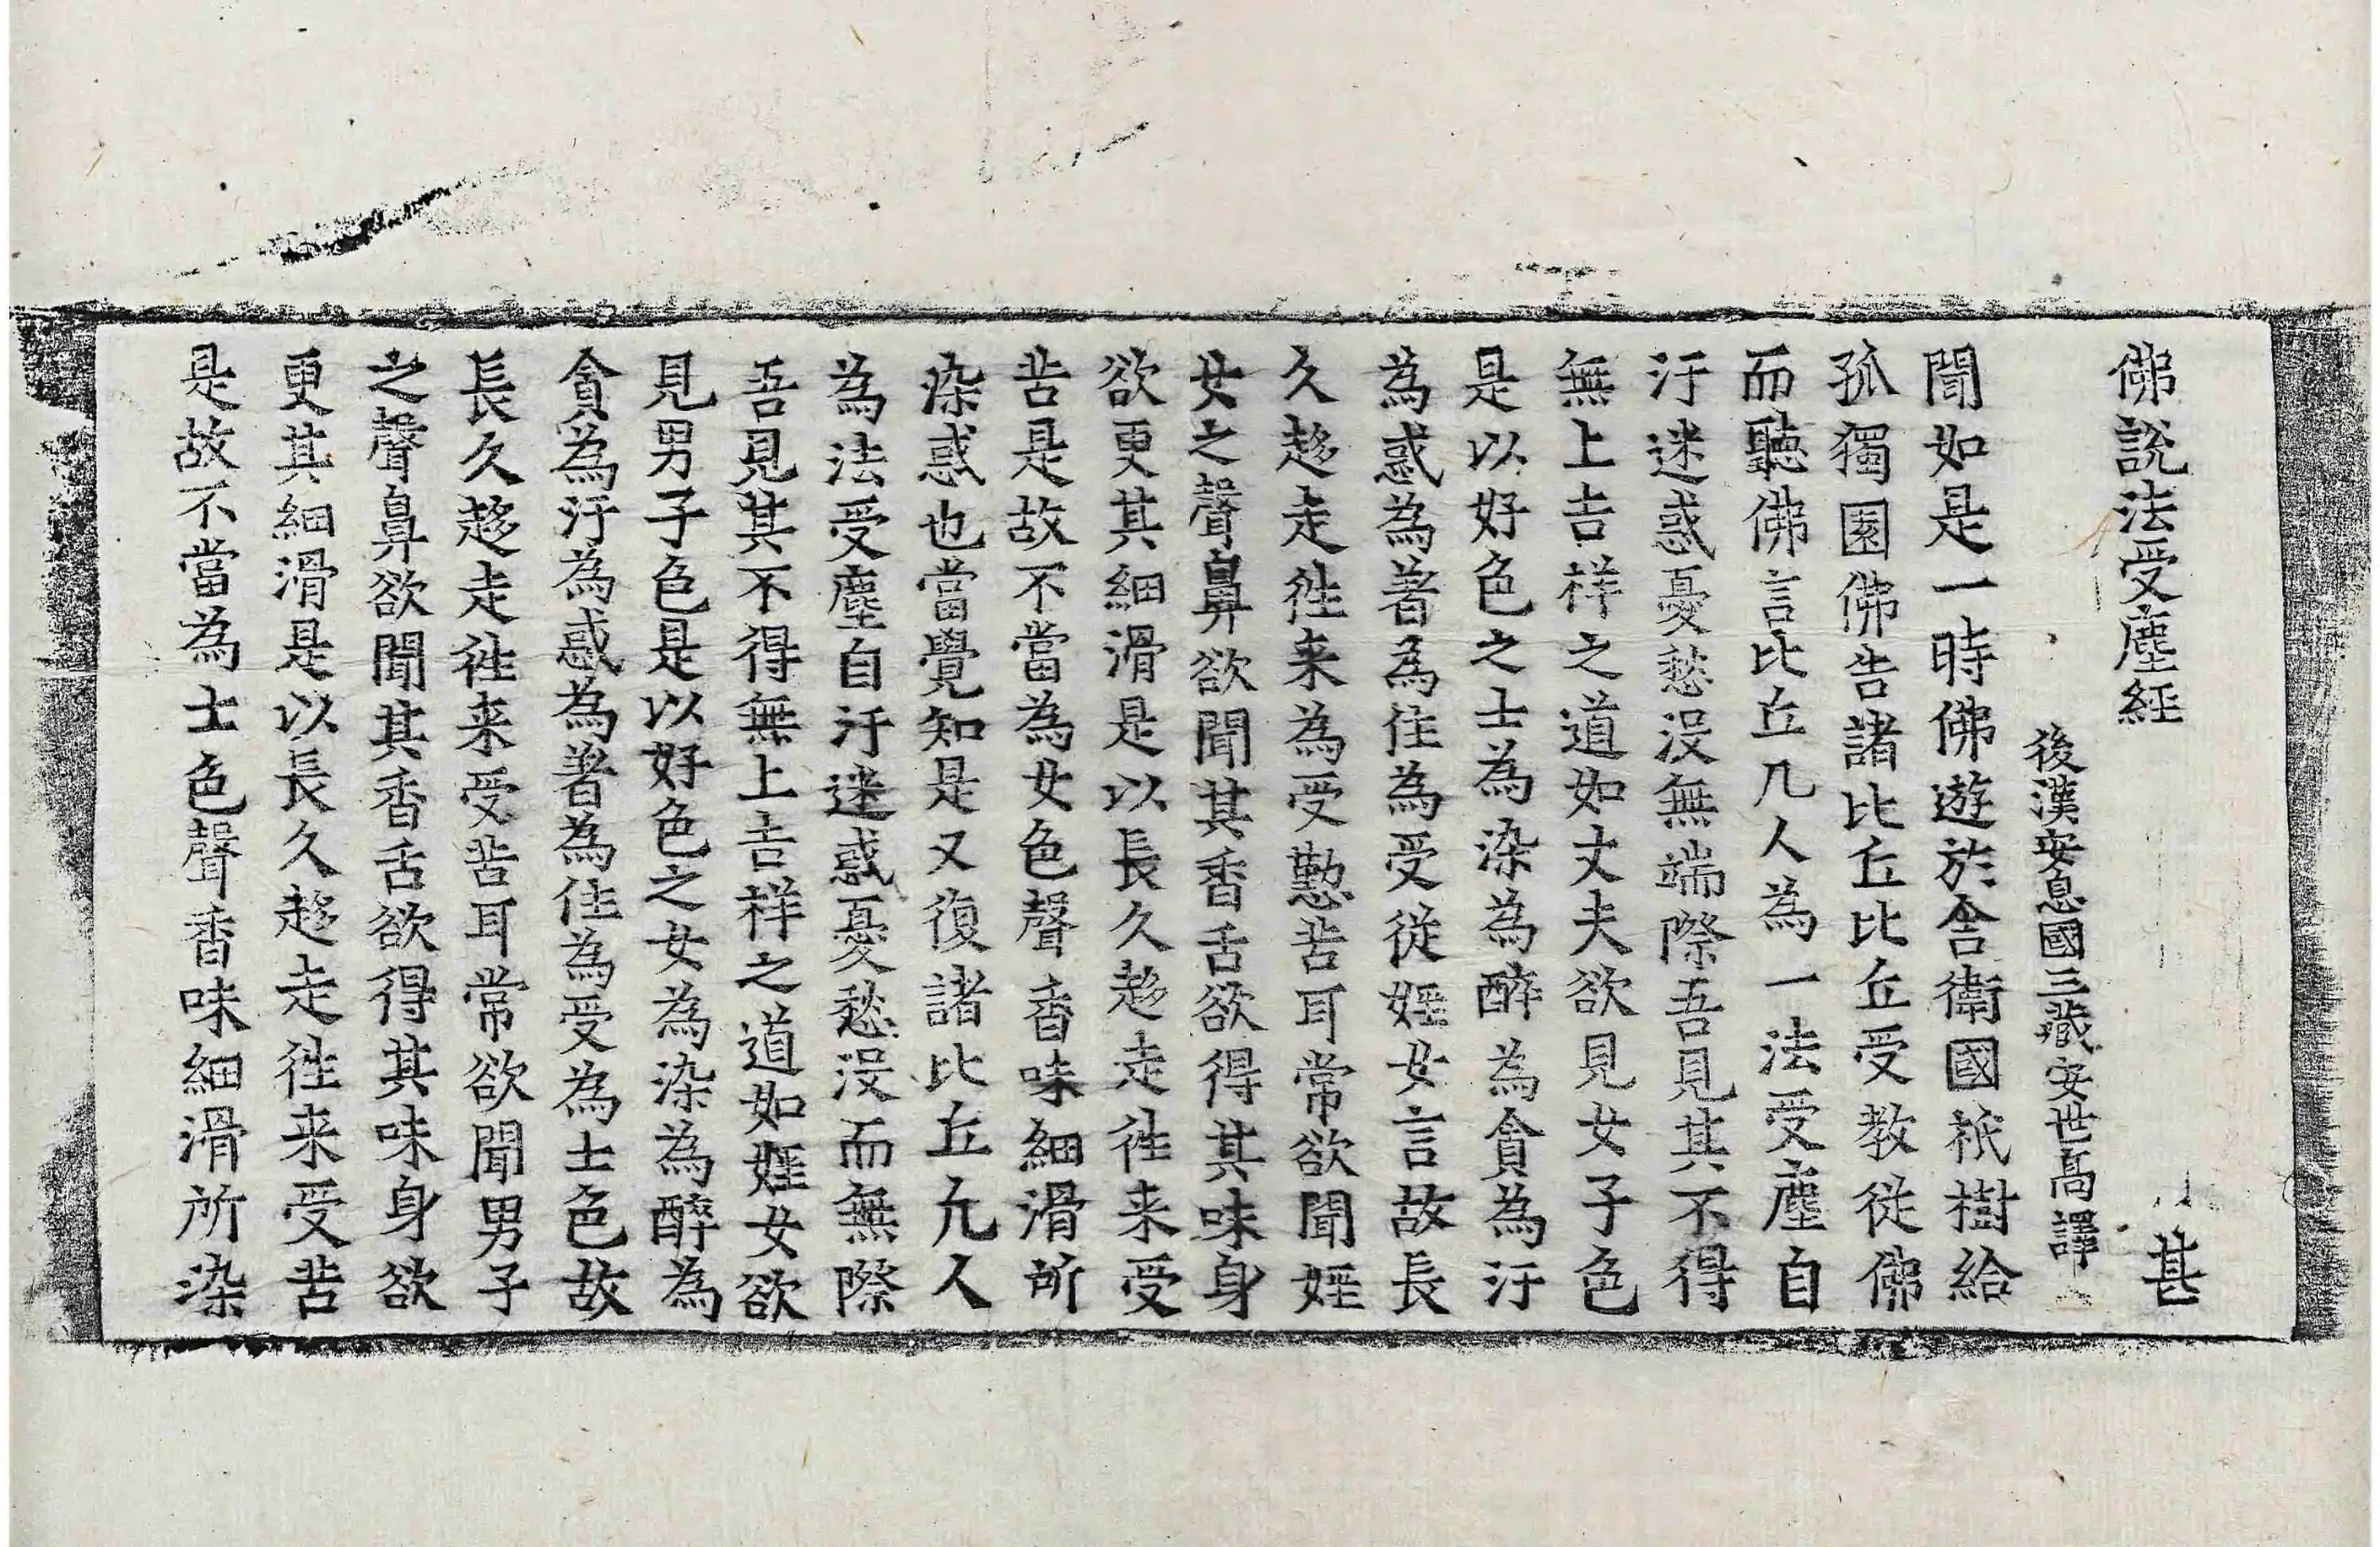 佛說法受塵經 甚
後漢安息國三藏安世高譯
聞如是一時佛遊於舍衛國祇樹給
孤獨園佛告諸比丘比丘受教從佛
而聽佛言比丘凢人為一法受塵自
汙迷惑憂愁没無端際吾見其不得
無上吉祥之道如丈夫欲見女子色
是以好色之士為染為醉為貪為汙
為惑為著為住為受從婬女言故長
久趍走徃来為受懃苦耳常欲聞婬
女之聲鼻欲聞其香舌欲得其味身
欲更其細滑是以長久趍走徃来受
苦是故不當為女色聲香味細滑所
染惑也當覺知是又復諸比丘凢人
為法受塵自汙迷惑憂愁没而無際
吾見其不得無上吉祥之道如婬女欲
見男子色是以好色之女為染為醉為
貪為汙為惑為著為住為受為士色故
長久趍走徃来受苦耳常欲聞男子
之聲鼻欲聞其香舌欲得其味身欲
更其細滑是以長久趍走徃来受苦
是故不當為士色聲香味細滑所染